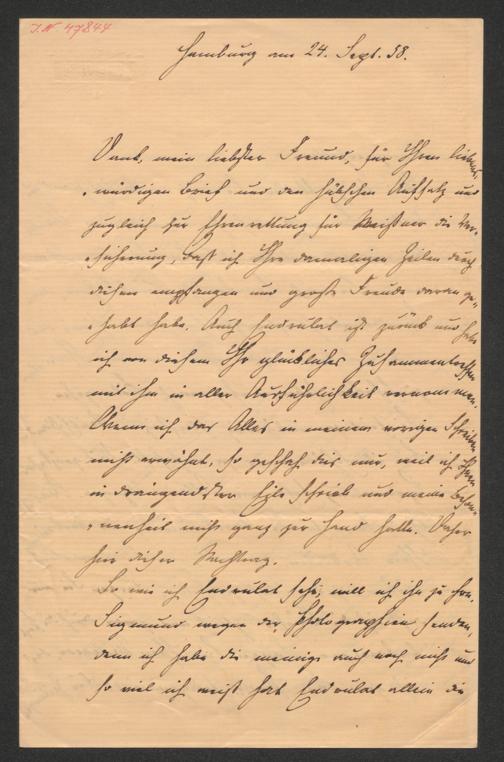 I.N. 47844
Hamburg am 24. Sept. 88.
Dank, mein liebster Freund, für Ihren liebens-
würdigen Brief und den hübschen Aufsatz und
zugleich zur Ehrenrettung für Meißner die Ver-
sicherung, daß ich Ihre damaligen Zeilen durch
diesen empfangen und große Freude daran ge-
habt habe. Auch Endrulat ist zurück und habe
ich von diesem Ihr glückliches Zusammentreffen
mit ihm in aller Ausführlichkeit vernommen.
Wenn ich das Alles in meinem vorigen Schreiben
nicht erwähnt, so geschah dies nur, weil ich Ihnen
in drängendster Eile schrieb und meine Beson-
nenheit nicht ganz zur Hand hatte. Daher
hier dieser Nachtrag.
So wie ich Endrulat sehe, will ich ihn zu Frn.
Sigmund wegen der Photographien senden,
denn ich habe die meinige auch noch nicht und
so viel ich weiß hat Endrulat allein die